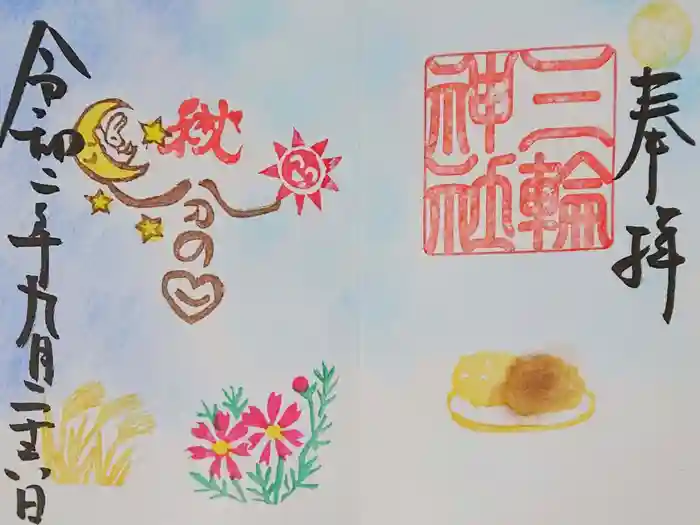 奉拝
三輪
神社
秋
分の
令和二年九月二十六日